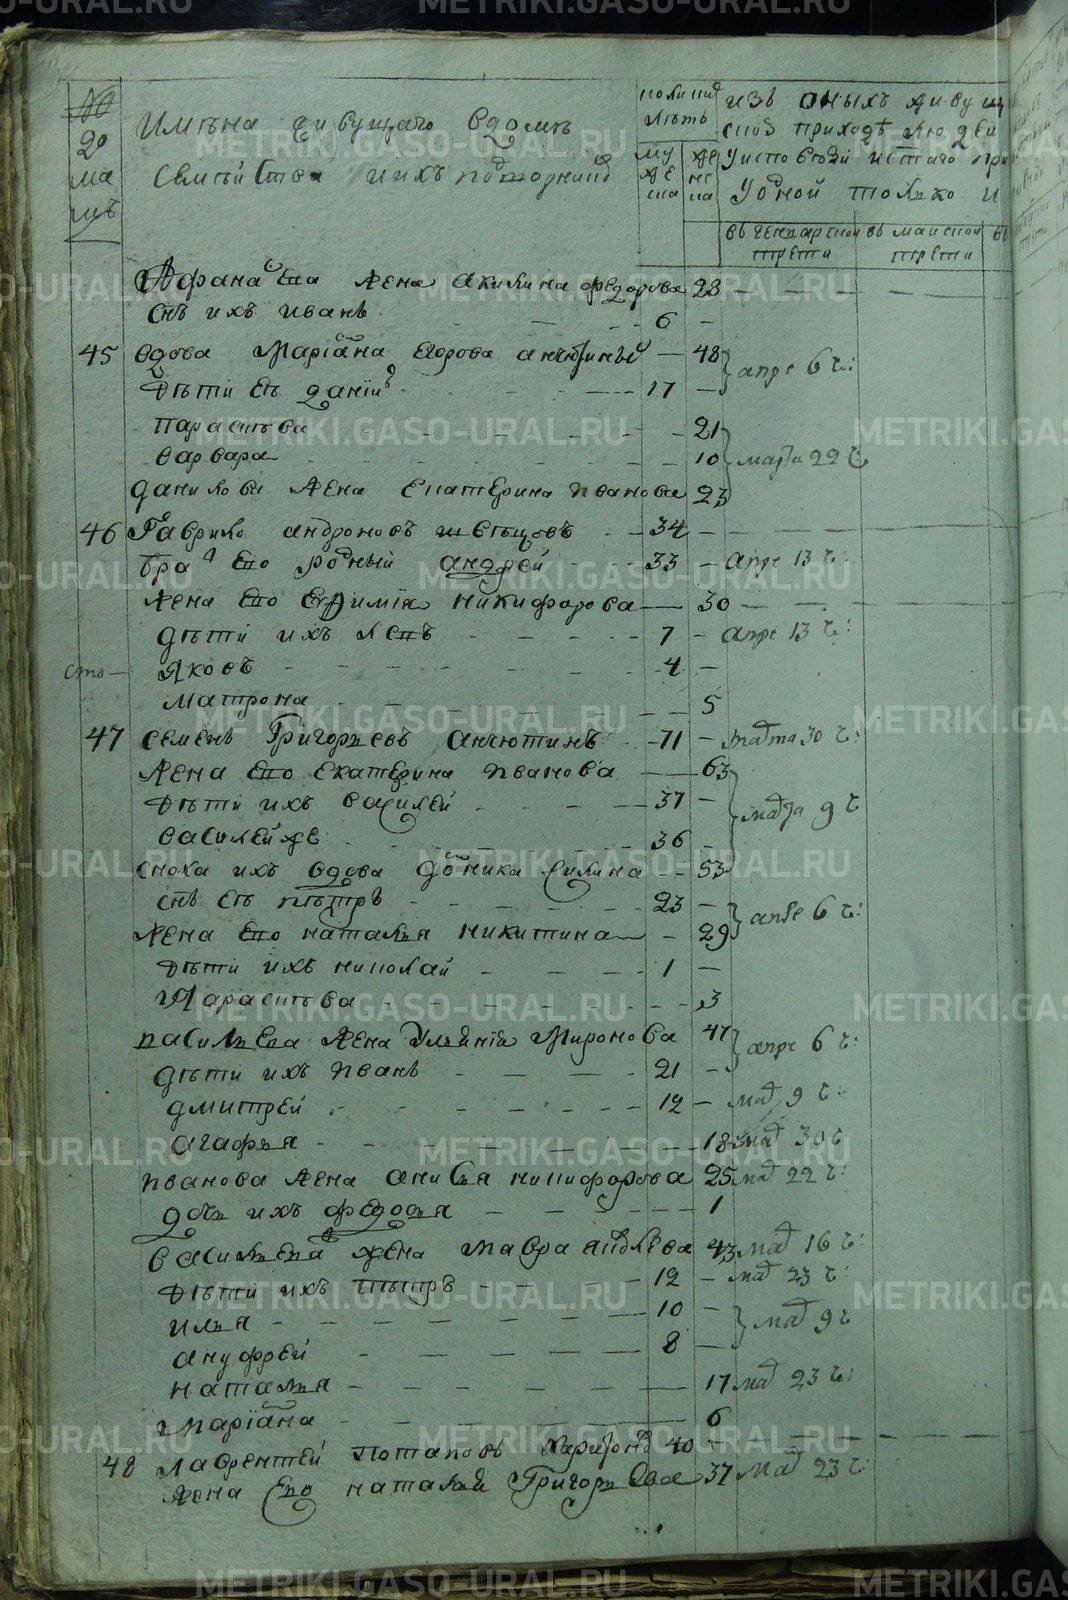 № домамъ
Имѣна живущаго вдомѣ
семѣйства иихъ
лѣтъ
мужеска
женска
изъ оныхъ живущ
сповъ приходѣ людей
уисповѣди истаго при
Уодной толко и
въ генварской трети
въ маиской трети
въ
Афанасева жена акилина федорова 28
снъ ихъ иванъ 6
45 вдова Маріанна Егорова анчютиныхъ 48
дѣти еѣ даніил 17 апре 6 ч:
параскѣва 21
варвара 10 марта 22 ч
данилова жена Екатерина иванова 23
46 Гаврило андроновъ швецовъ 34
братъ Его родный андрей 33 апре 13 ч:
жена Его Евфимія никифорова 30
дѣти ихъ левъ 7 апре 13 ч:
яковъ 4
матрона 5
47 семенъ Григорьевъ анчютинъ 71 марта 30 ч:
жена Его Екатерина иванова 63
дѣти ихъ василей 37 марта 9 ч
василей же 36
сноха ихъ вдова домника силина 53
снъ еѣ петръ 23 апре 6 ч:
жена Его наталья никитина 29
дѣти ихъ николай 1
Параскѣва 3
василева жена Ульянія Миронова 47 апре 6 ч:
дѣти ихъ иванъ 21
дмитрей 12 мар 9 ч:
агафья 18 мар 30 ч
иванова жена анисья никифорова 25 мар 22 ч:
дочь ихъ федосья 1
василева жена мавра андреева 43 мар 16 ч:
дѣти ихъ петръ 12 мар 23 ч:
илья 10 мар 9 ч
ануфрей 8
наталья 17 мар 23 ч:
маріанна 6
48 лаврентей потаповъ 40
жена Его наталья Григорьева 37 мар 23 ч:
METRIKI.GASO-URAL.RU